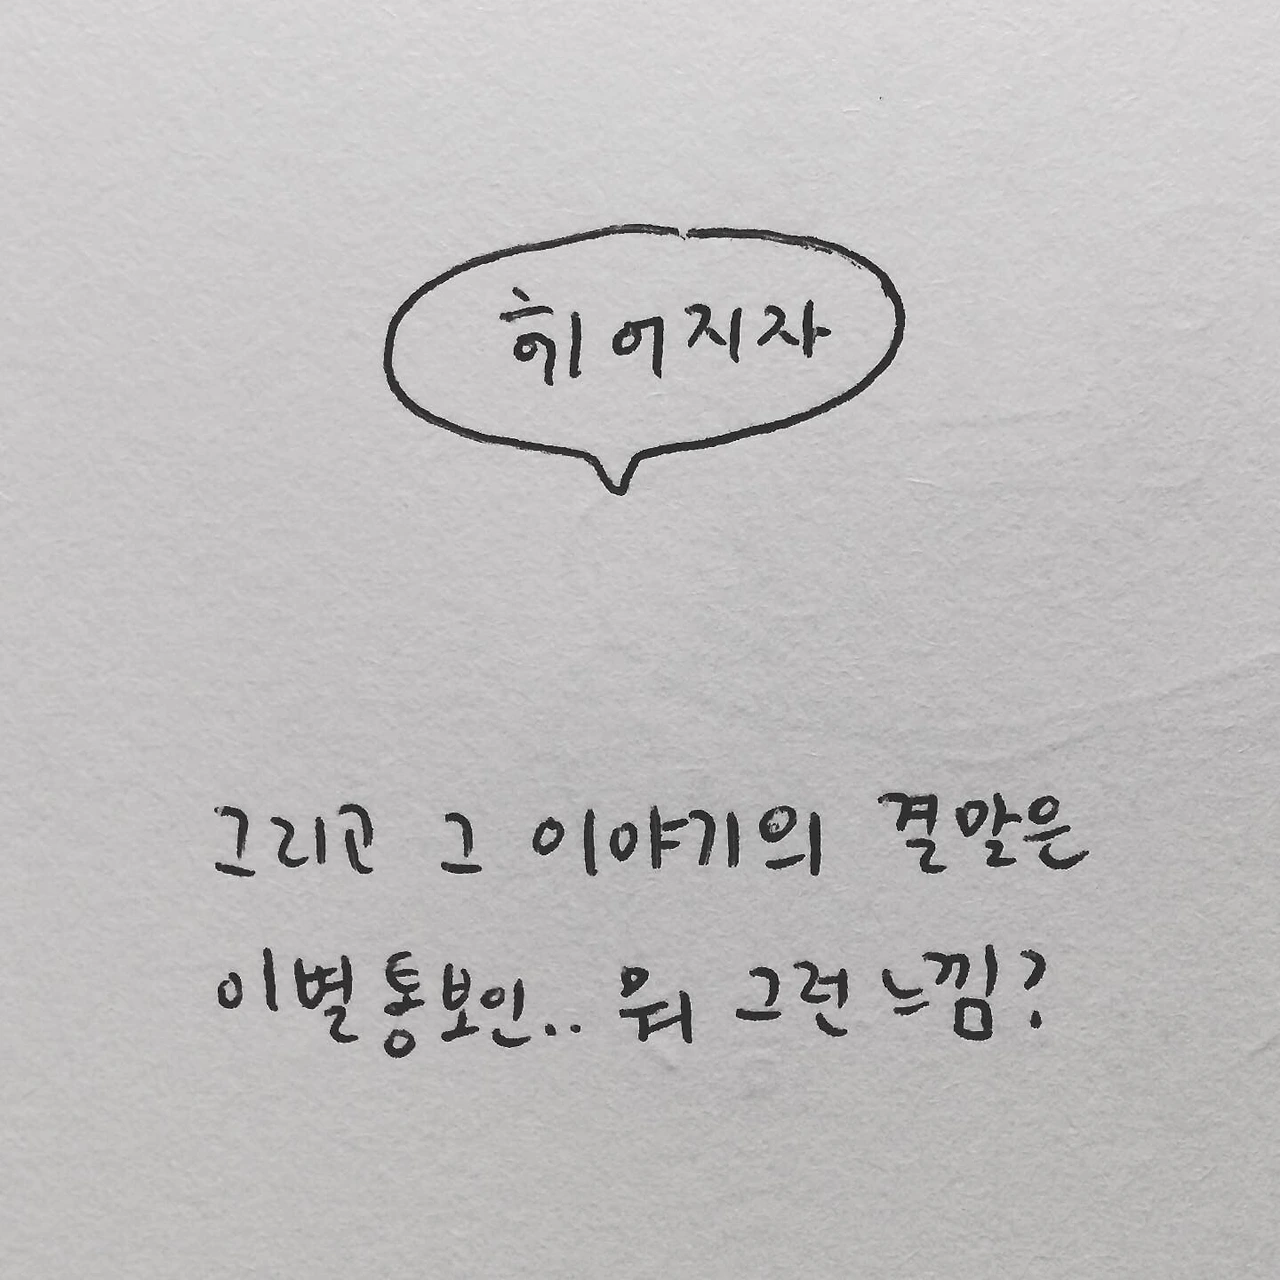 헤어지자
그리고 그 이야기의 결말은
이별통보인.. 뭐 그런 느낌?